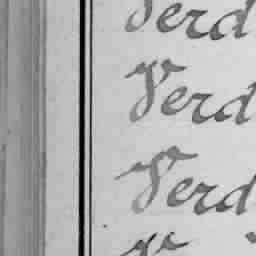 Verd
Verd
Verd